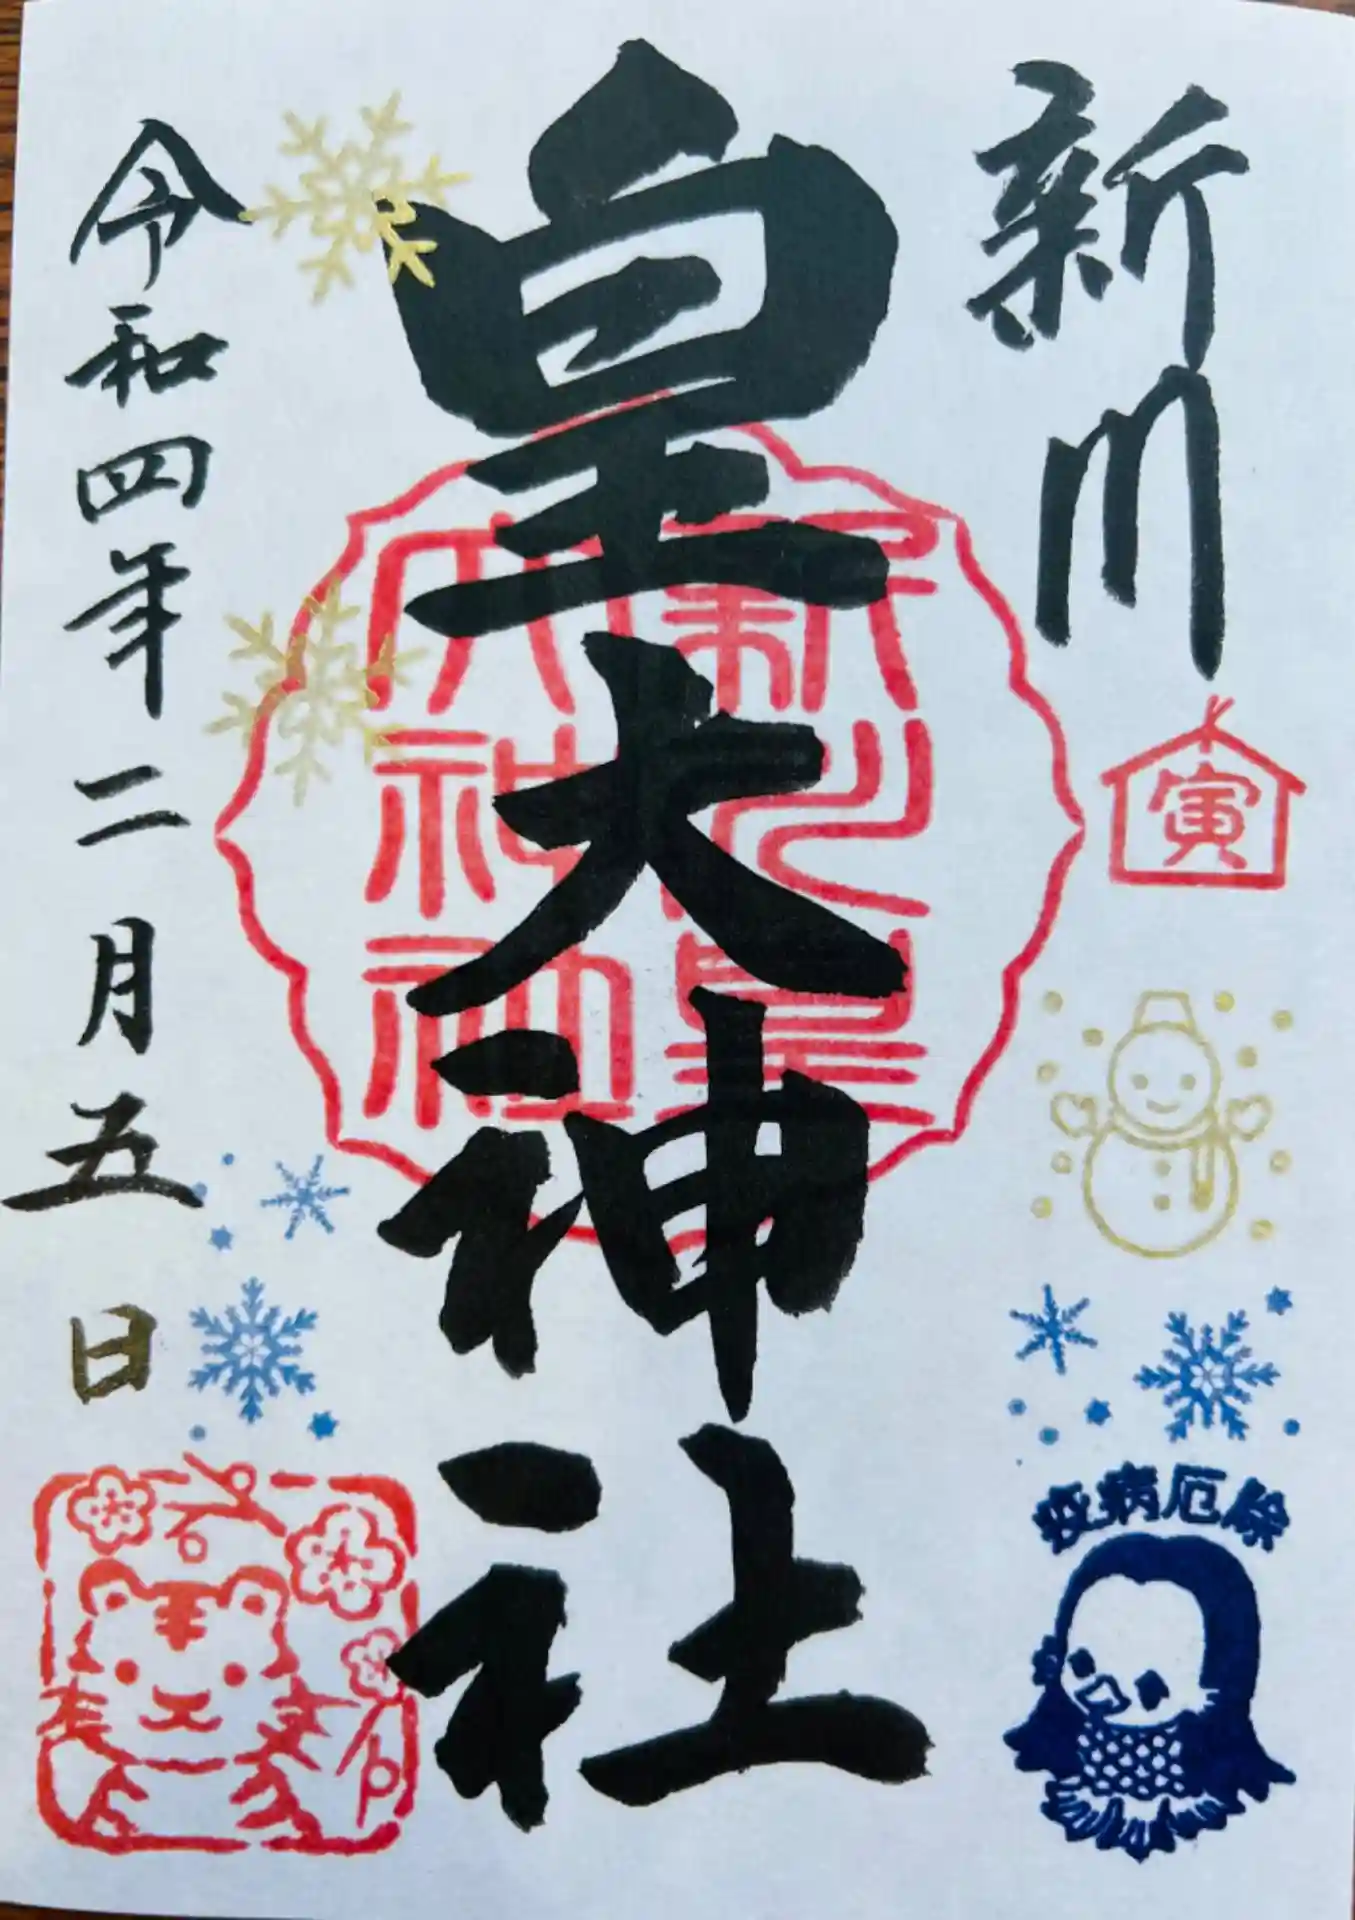 新川
寅
疫病厄除
皇大神社
新川皇
大神社
令和四年二月五日